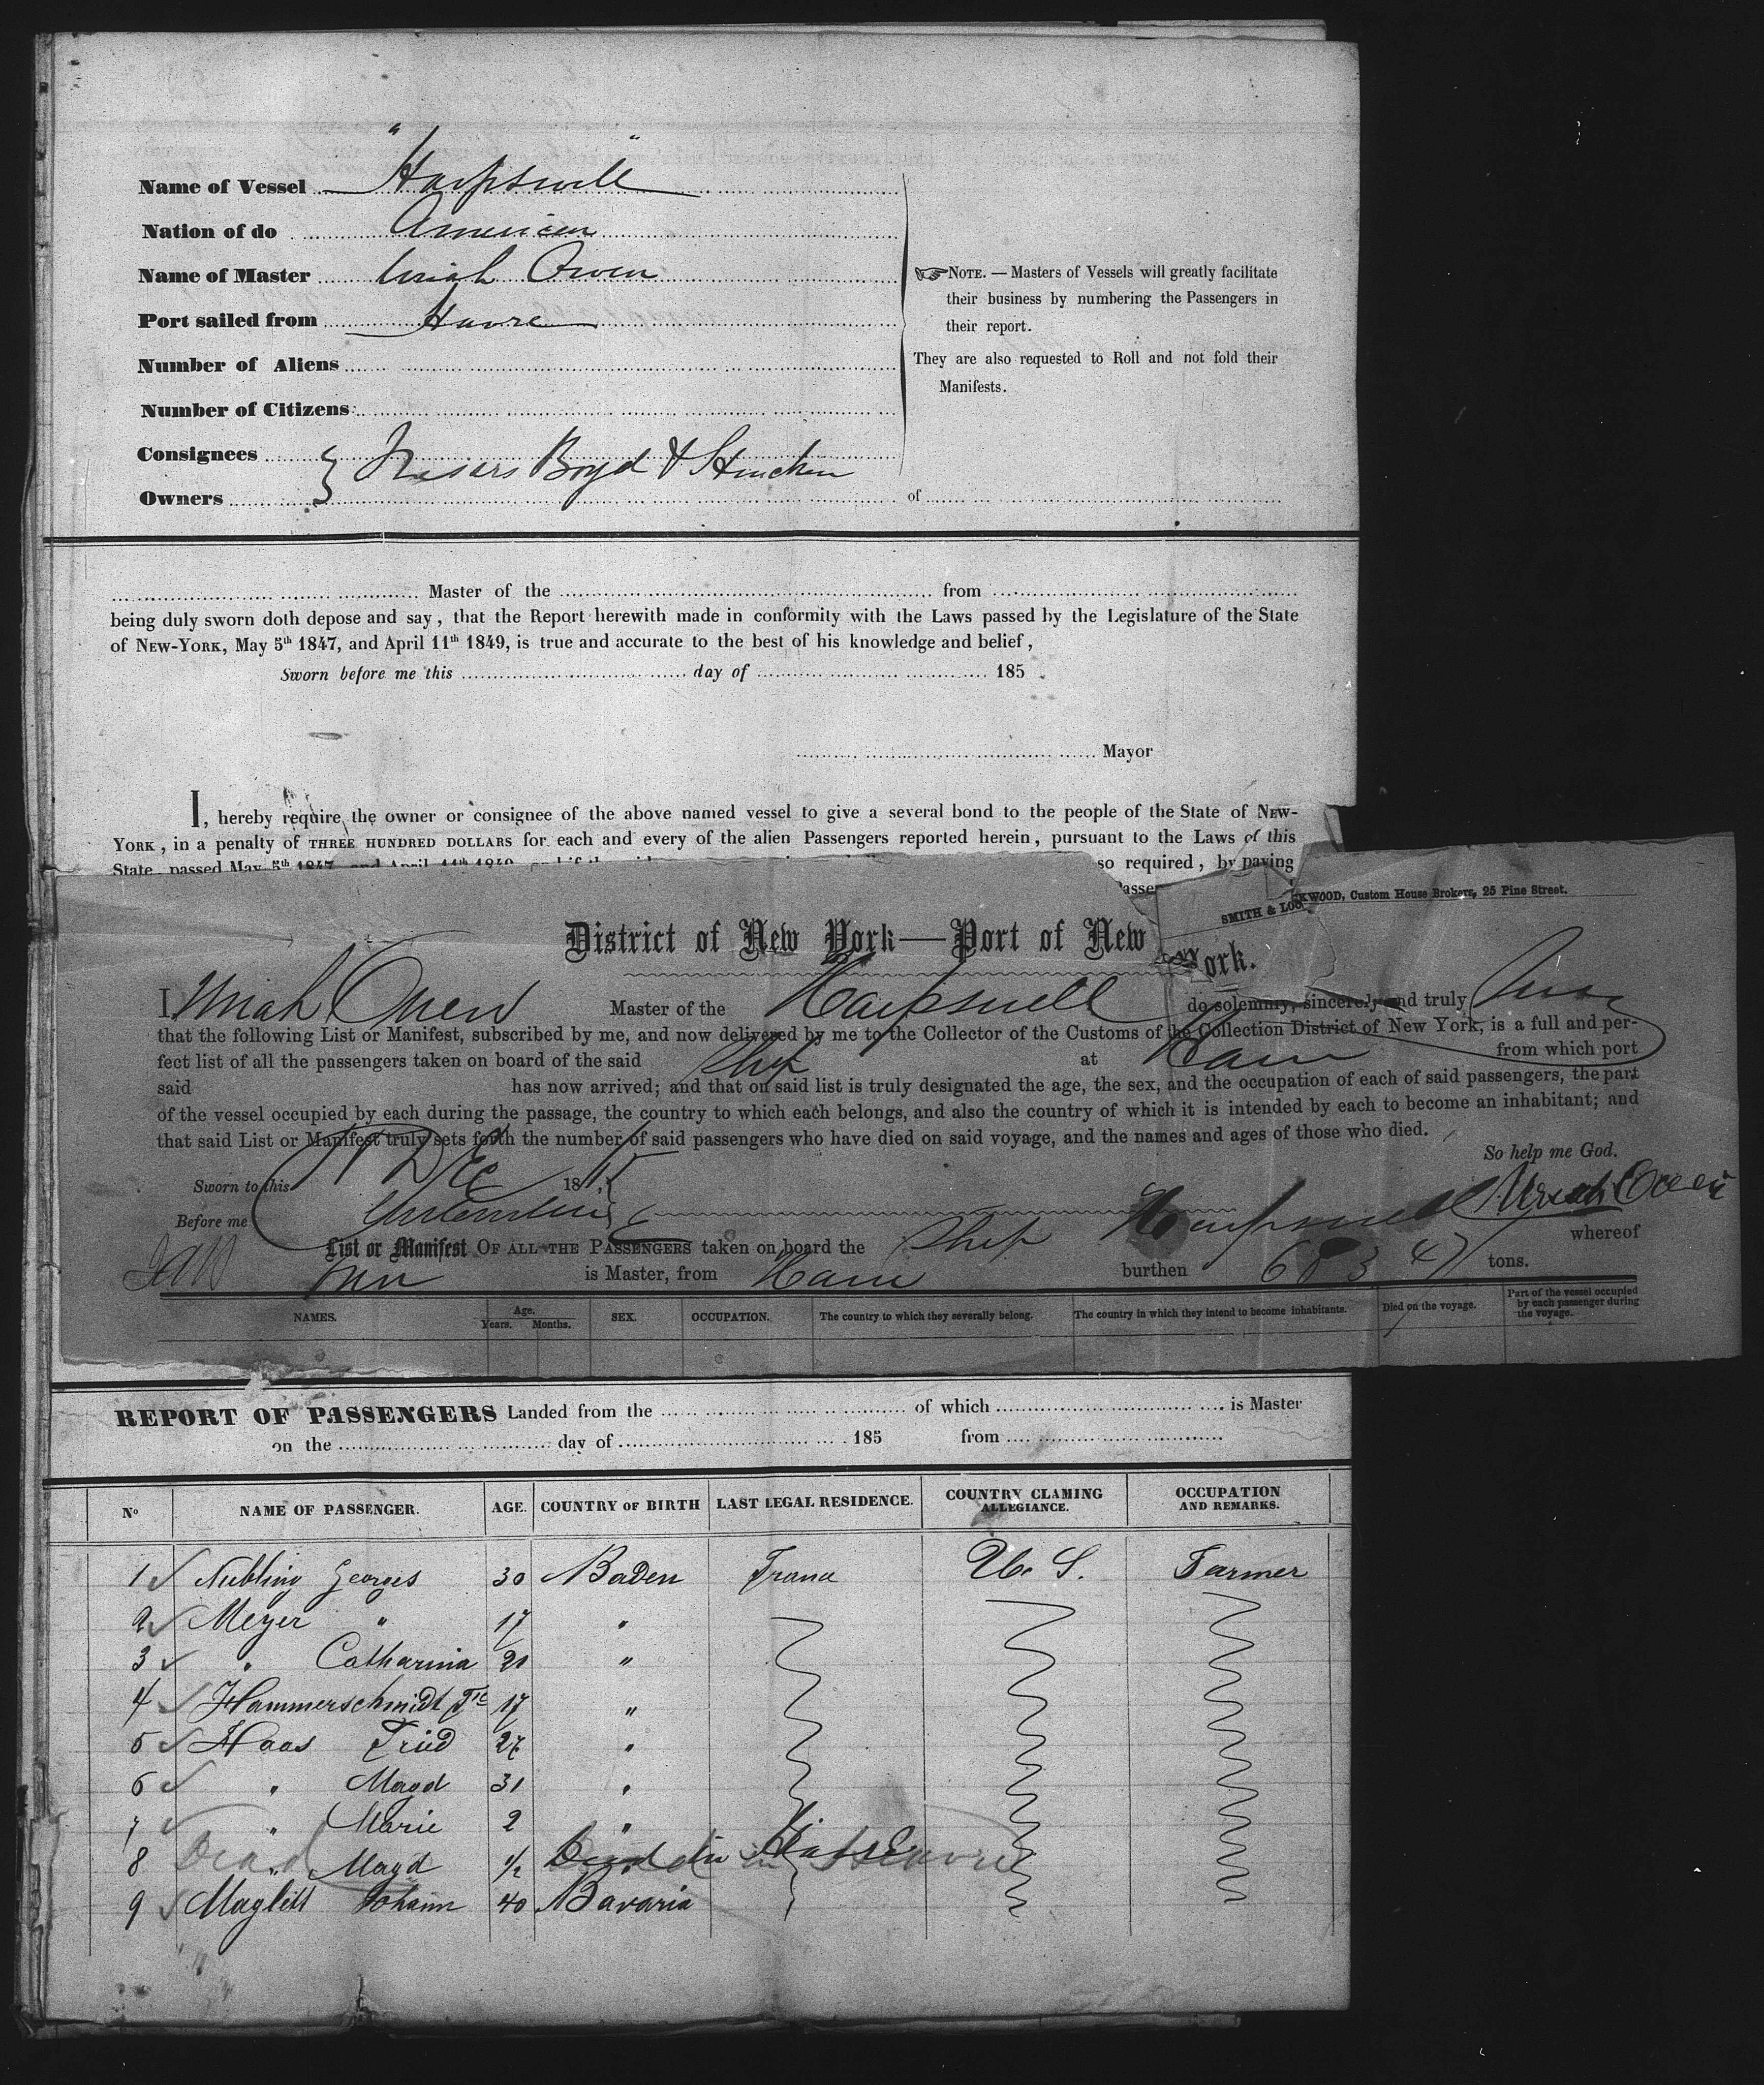 Name of Vessel "Harpswell"
Nation of do American
Name of Master Uriah Owen
Port sailed from Havre
Number of Aliens
Number of Citizens
Consignees } Messrs Boyd &
Owners of
☞ NOTE. — Masters of Vessels will greatly facilitate
their business by numbering the Passengers in
their report.
They are also requested to Roll and not fold their
Manifests.
Master of the from
being duly sworn doth depose and say, that the Report herewith made in conformity with the Laws passed by the Legislature of the State
of NEW-YORK, May 5th 1847, and April 11th 1849, is true and accurate to the best of his knowledge and belief,
Sworn before me this day of 185
Mayor
I, hereby require the owner or consignee of the above named vessel to give a several bond to the people of the State of NEW-
YORK, in a penalty of THREE HUNDRED DOLLARS for each and every of the alien Passengers reported herein, pursuant to the Laws of this
State, passed May 5th 1847, and April 11th 1849, so required, by paying
SMITH & LOCKWOOD, Custom House Brokers, 25 Pine Street.
District of New York—Port of New York.
I Uriah Owen Master of the Harpswell do solemnly, sincerely and truly Swear
that the following List or Manifest, subscribed by me, and now delivered by me to the Collector of the Customs of the Collection District of New York, is a full and per-
fect list of all the passengers taken on board of the said Ship at Havre from which port
said has now arrived; and that on said list is truly designated the age, the sex, and the occupation of each of said passengers, the part
of the vessel occupied by each during the passage, the country to which each belongs, and also the country of which it is intended by each to become an inhabitant; and
that said List or Manifest truly sets forth the number of said passengers who have died on said voyage, and the names and ages of those who died.
So help me God.
Sworn to this Dec 18 Uriah Owen
Before me
List or Manifest OF ALL THE PASSENGERS taken on board the Ship Harpswell whereof
is Master, from Havre burthen tons.
NAMES. Age. Years. Months. SEX. OCCUPATION. The country to which they severally belong. The country in which they intend to become inhabitants. Died on the voyage. Part of the vessel occupied by each passenger during the voyage.
REPORT OF PASSENGERS Landed from the of which is Master
on the day of 185 from
No NAME OF PASSENGER. AGE. COUNTRY OF BIRTH LAST LEGAL RESIDENCE. COUNTRY CLAMING ALLEGIANCE. OCCUPATION AND REMARKS.
1 Nubling Georges 30 Baden France U. S. Farmer
2 Meyer " 17 "
3 " Catharina 20 "
4 Hammerschmidt 17 "
5 Haas Fried 27 "
6 " Magd 31 "
7 " Marie 2 "
8 Dead " Magd 1/2 Dead in Havre
9 Johann 40 Bavaria